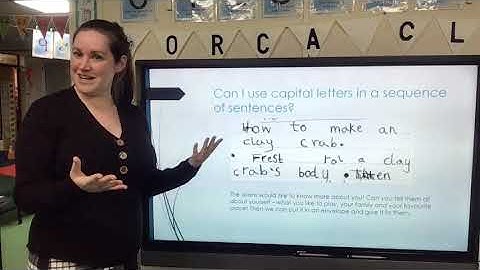 ORCA CL
Can I use capital letters in a sequence
of sentences?
How to make an
clay crab.
• Frest rol a clay
crab's body •
The aliens would like to know more about you! Can you tell them all
about yourself – what you like to play, your family and your favourite
place? Then we can put it in an envelope and give it to them.